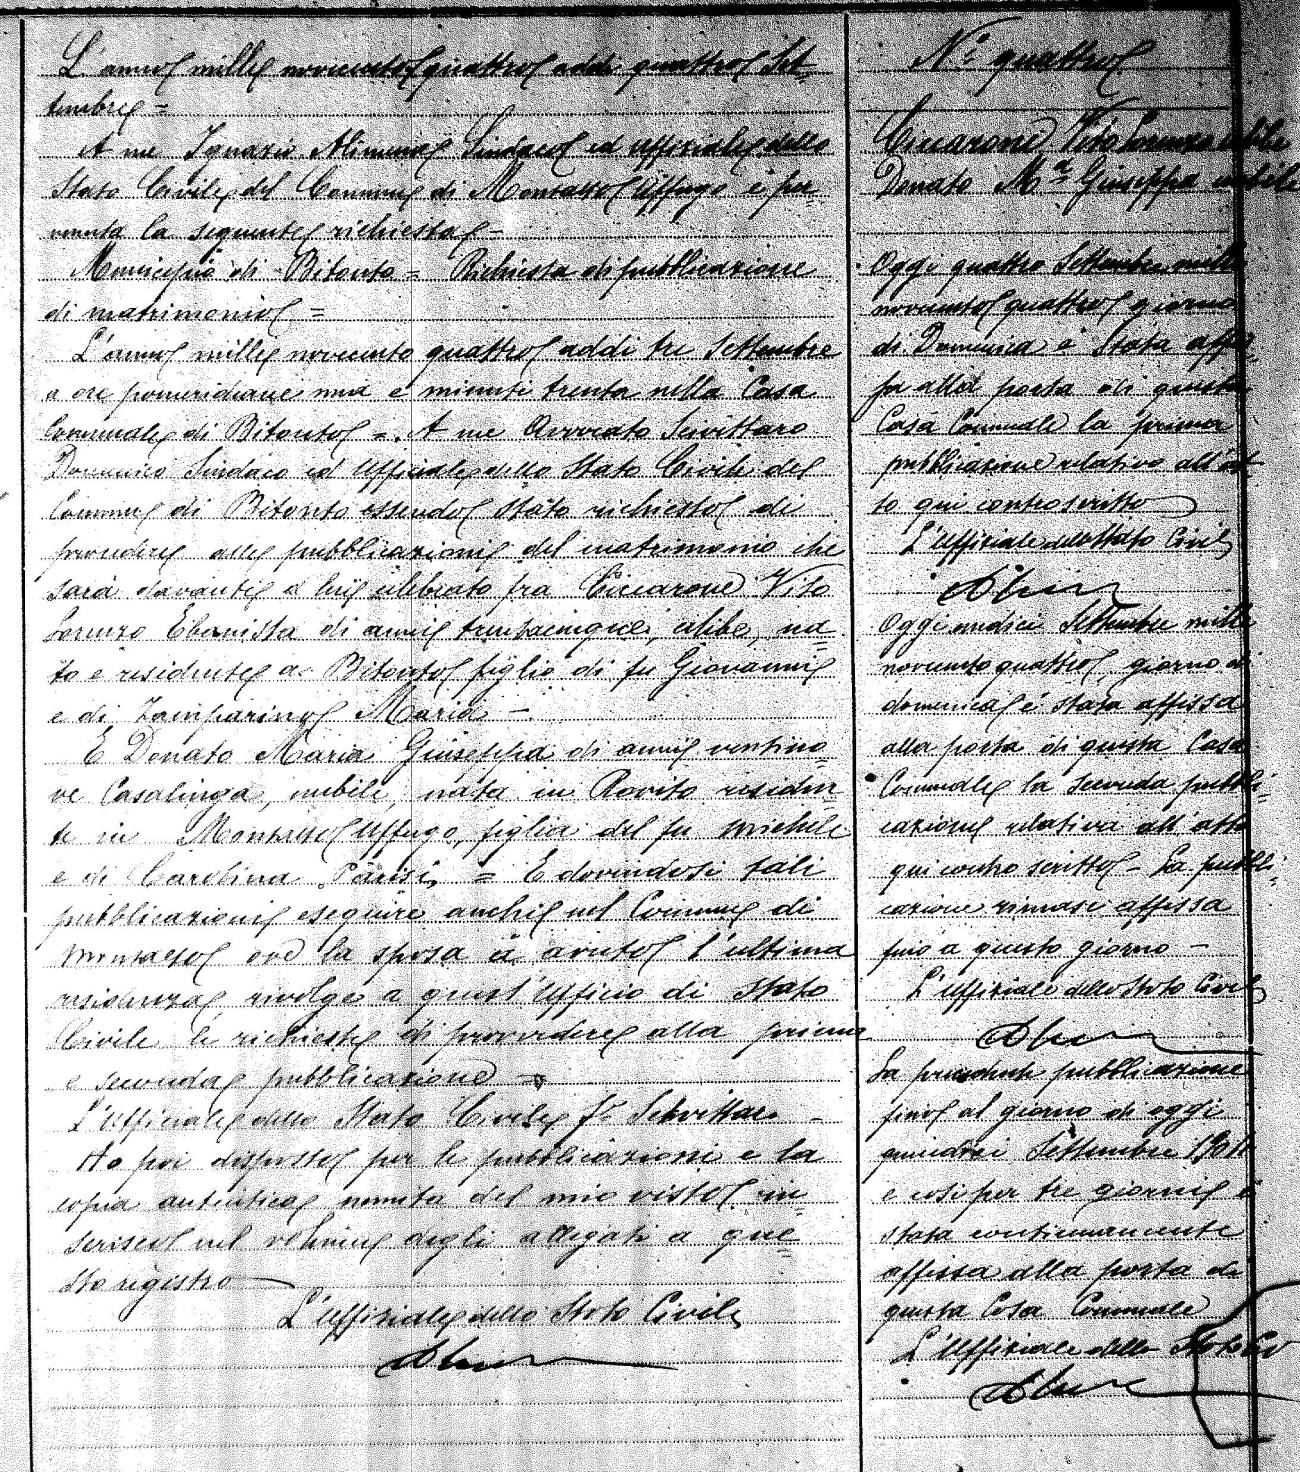 L'anno mille novecento quattro addì quattro Set-
tembre =
A me Ignazio Alimena Sindaco ed Uffiziale dello
Stato Civile del Comune di Montalto Uffugo è per-
venuta la seguente richiesta -
Municipio di Bitonto = Richiesta di pubblicazione
di matrimonio =
L'anno mille novecento quattro addì tre Settembre
a ore pomeridiane una e minuti trenta nella Casa
Comunale di Bitonto =. A me Avvocato
Domenico Sindaco ed Ufficiale dello Stato Civile del
Comune di Bitonto essendo stato richiesto di
procedere alle pubblicazioni del matrimonio che
sarà davanti a lui celebrato fra Ciccarone Vito
Lorenzo Ebanista di anni trentacinque, celibe, na-
to e residente a Bitonto figlio di fu Giovanni
e di Zamparino Maria -
E Donato Maria Giuseppa di anni ventino-
ve Casalinga, nubile, nata in Rovito residen
te in Montalto Uffugo, figlia del fu Michele
e di Carolina Parisi, = E dovendosi tali
pubblicazioni eseguire anche nel Comune di
Montalto ove la sposa à avuto l'ultima
residenza, rivolge a quest'Ufficio di Stato
Civile le richieste di provvedere alla prima
e seconda pubblicazione =
L'Ufficiale dello Stato Civile f.to
Ho poi disposto per le pubblicazioni e la
copia autentica munita del mio visto in-
serisco nel volume degli allegati a que-
sto registro
L'Uffiziale dello Stato Civile
N.° quattro
Ciccarone Vito Lorenzo celibe
Donato M.a Giuseppa nubile
Oggi quattro Settembre mille
novecento quattro giorno
di Domenica è stata affis-
sa alla porta di questa
Casa Comunale la prima
pubblicazione relativa all'at-
to qui controscritto
L'Uffiziale dello Stato Civile
Oggi undici Settembre mille
novecento quattro, giorno di
domenica è stata affissa
alla porta di questa Casa
Comunale la seconda pubbli-
cazione relativa all'atto
qui contro scritto - La pubbli-
cazione rimase affissa
fino a questo giorno -
L'Uffiziale dello Stato Civile
La precedente pubblicazione
fino al giorno di oggi
quindici Settembre 1904
e così per tre giorni è
stata continuamente
affissa alla porta di
questa Casa Comunale
L'Uffiziale dello Stato Civ